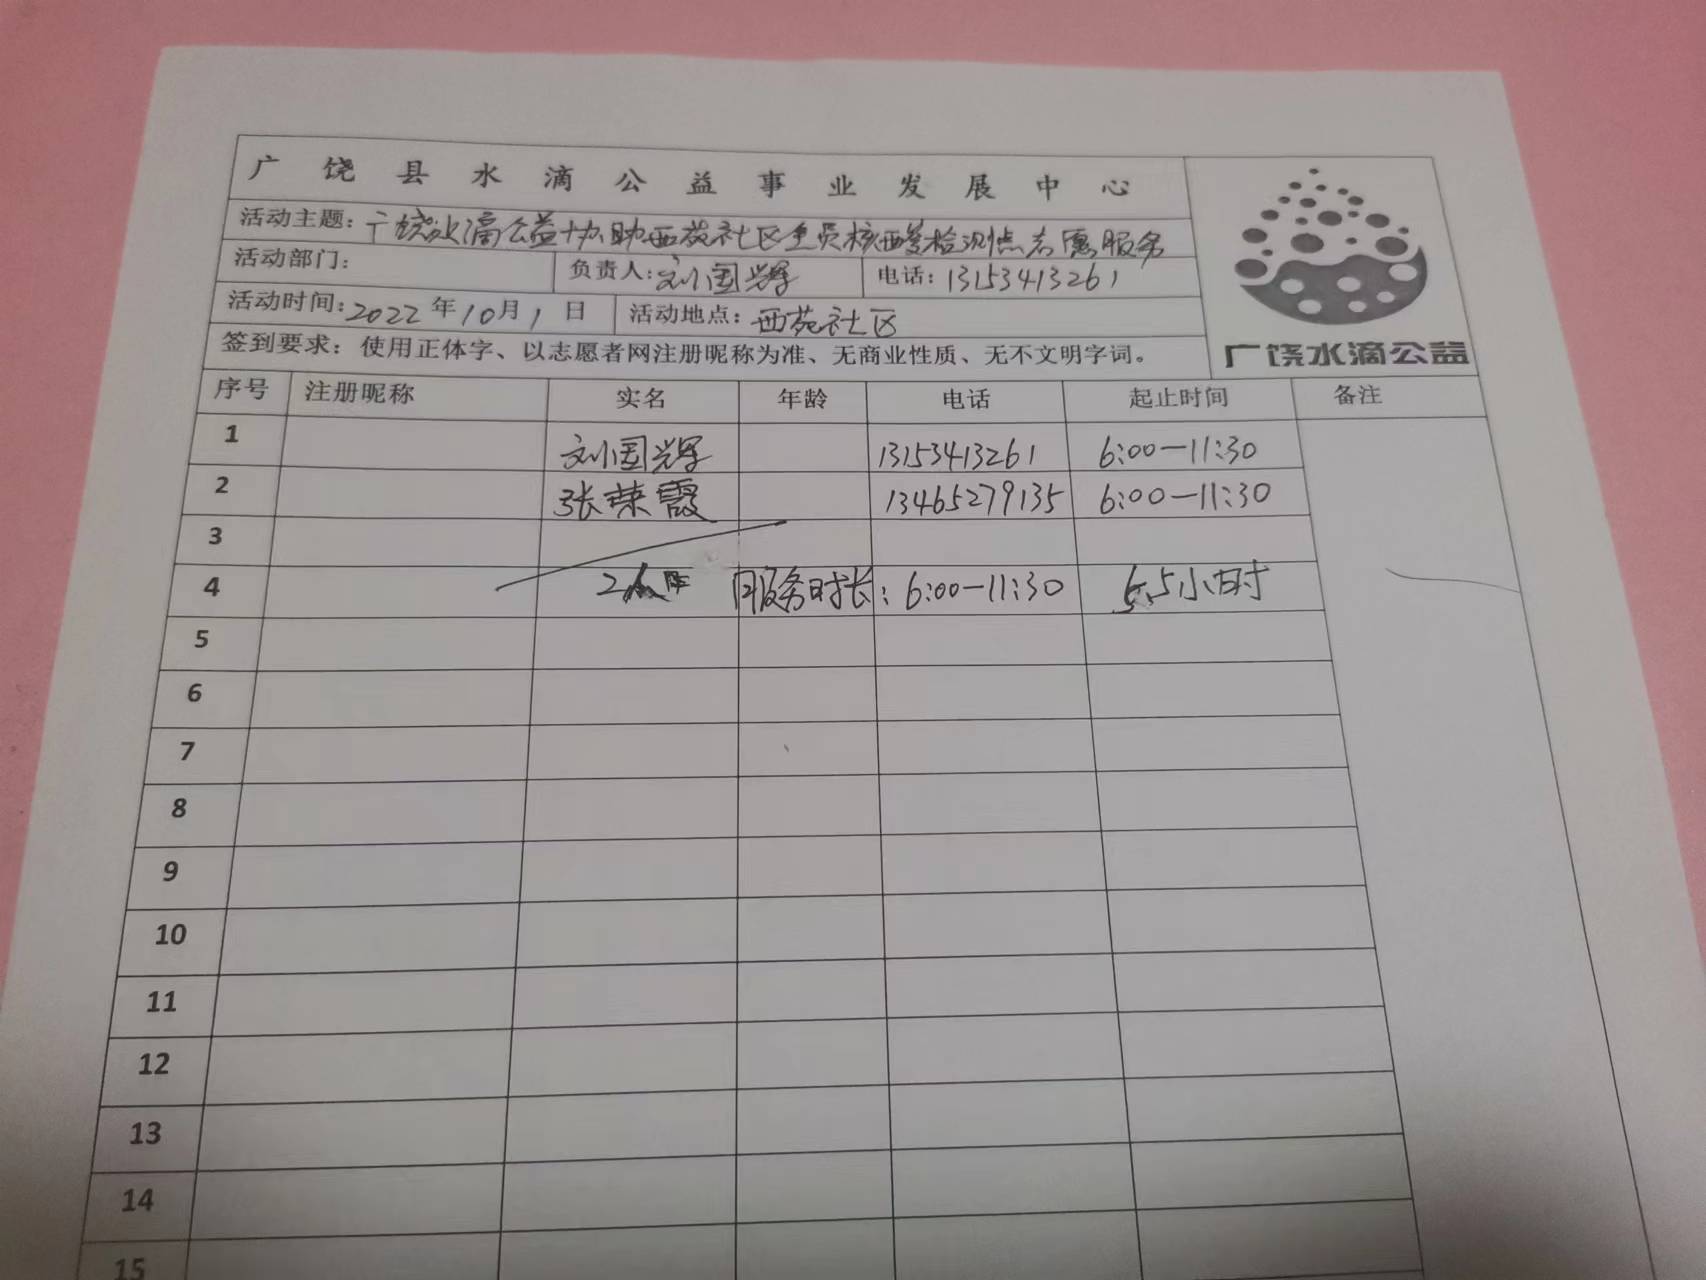 广饶县水滴公益事业发展中心
活动主题：广饶水滴公益协助西苑社区全员核酸检测点志愿服务
活动部门： 负责人：刘国辉 电话：13153413261
活动时间：2022年10月1日 活动地点：西苑社区
签到要求：使用正体字、以志愿者网注册昵称为准、无商业性质、无不文明字词。
广饶水滴公益
序号 注册昵称 实名 年龄 电话 起止时间 备注
1 刘国辉 13153413261 6:00—11:30
2 张荣霞 13465279135 6:00—11:30
3
4 2人 服务时长：6:00—11:30 5.5小时
5
6
7
8
9
10
11
12
13
14
15